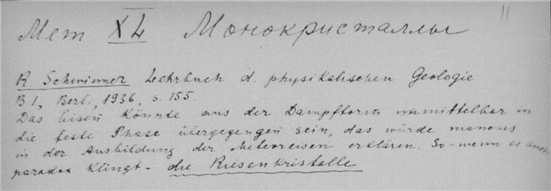 11
Мет XL Монокристаллы
R. Schwinner Lehrbuch d. physikalischen Geologie
B I, Berl., 1936, s. 155
Das Eisen könnte aus der Dampfform unmittelbar in
die feste Phase übergegangen sein, das würde manches
in der Ausbildung der Meteoreisen erklären. So - wenn es auch
paradox klingt - die Riesenkristalle